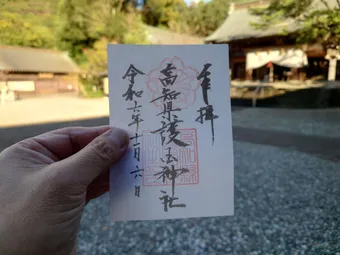 奉拝
高知県護国神社
令和六年十二月六日